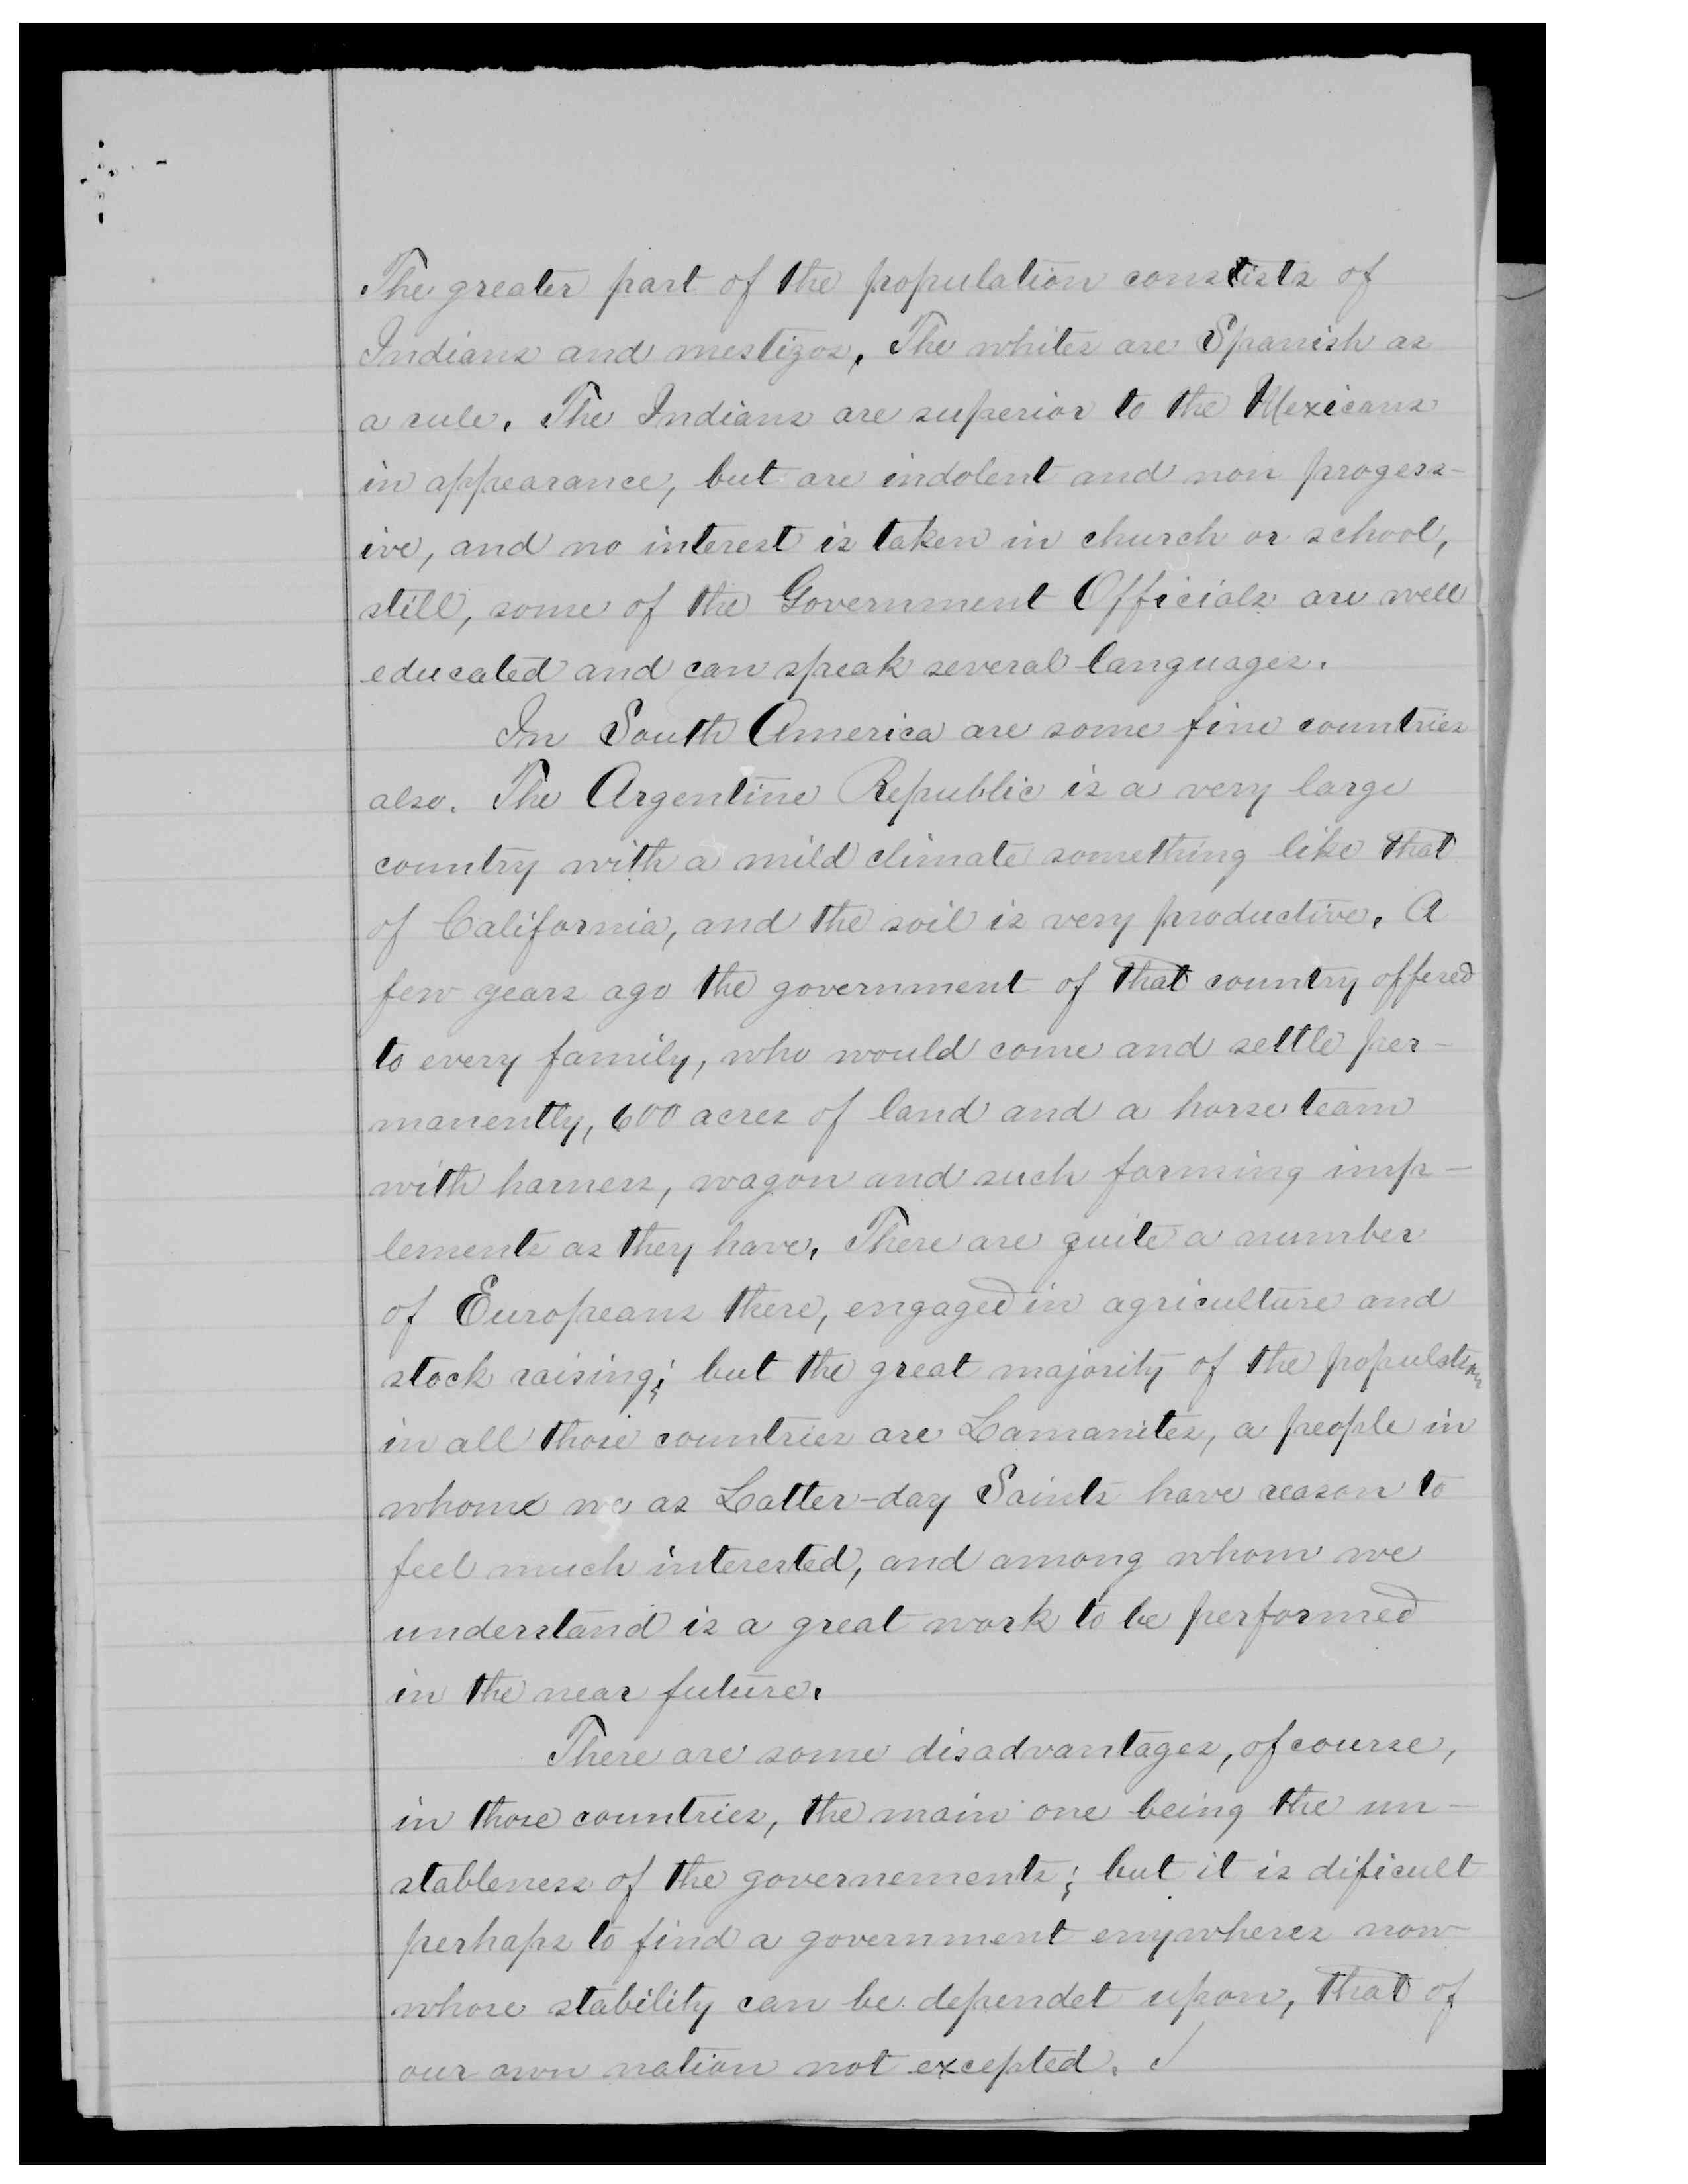 The greater part of the population constists of
Indians and mestizos. The whites are Spanish as
a rule. The Indians are superior to the Mexicans
in appearance, but are indolent and non progess-
ive, and no interest is taken in church or school,
still, some of the Government Officials are well
educated and can speak several languages.
In South America are some fine countries
also. The Argentine Republic is a very large
country with a mild climate something like that
of California, and the soil is very productive. A
few years ago the government of that country offered
to every family, who would come and settle per-
manently, 600 acres of land and a horse team
with harness, wagon and such farming imp-
lements as they have. There are quite a number
of Europeans there, engaged in agriculture and
stock raising; but the great majority of the population
in all those countries are Lamanites, a people in
whome we as Latter-day Saints have reason to
feel much interested, and among whom we
understand is a great work to be performed
in the near future.
There are some disadvantages, of course,
in those countries, the main one being the un-
stableness of the governements; but it is dificult
perhaps to find a government enywheres now
whose stability can be dependet upon, that of
our own nation not excepted.